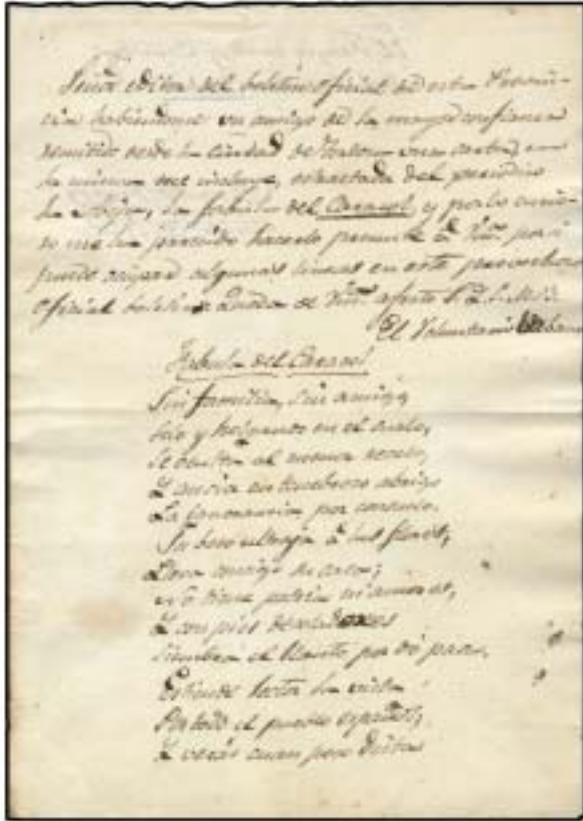 Señor editor del boletin oficial de esta Provin-
cia habiendome un amigo de la mayor confianza
remitido desde la ciudad de una carta, en
la misma me incluye, estractada del periodico
la Abeja, la fabula del Caracol, y por lo curio-
so me ha parecido hacerlo presente á Vm. por si
puede ocupar algunas lineas en este provechoso
Oficial boletin. Queda de Vm. afecto
El Voluntario Urbano
Fabula del Caracol
Sin familia, sin amigo,
Solo y en el suelo,
Se oculta al menor recelo,
Y ansia en tenebroso abrigo
La ignorancia por consuelo.
Su beso ultraja á las flores,
Lleva consigo su casa;
No tiene patria ni amores,
Y con pies
Siembra el llanto por dó pasa.
Estiende lector la vista
Por todo el pueblo español,
Y verás cuan poco dista